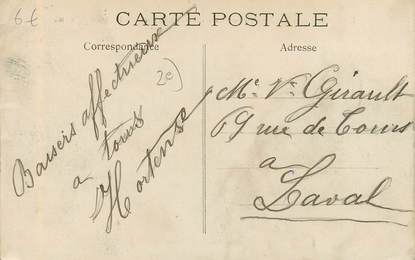 6€
CARTE POSTALE
Correspondance
Adresse
2e)
Baisers affectueux
a tous
Hortense
Me Ve Girault
69 rue de Tours
a
Laval